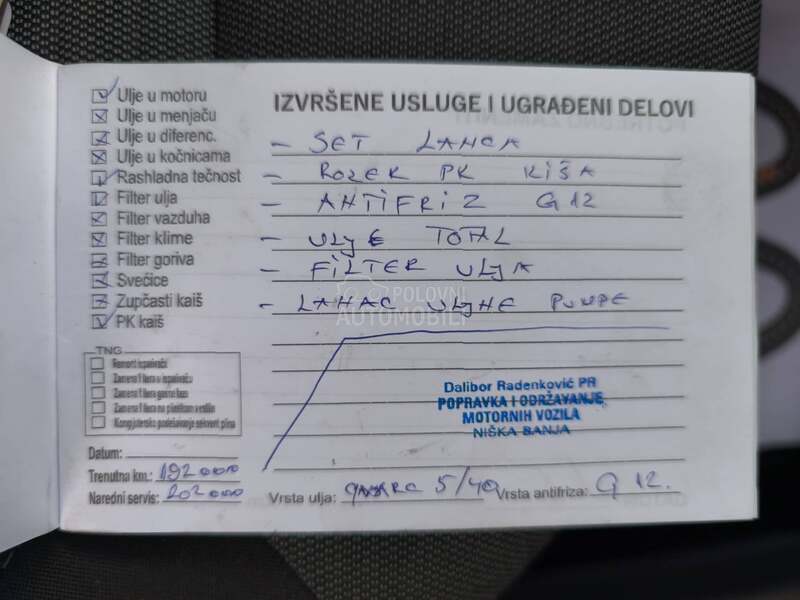 IZVRŠENE USLUGE I UGRAĐENI DELOVI
Ulje u motoru
Ulje u menjaču
Ulje u diferenc.
Ulje u kočnicama
Rashladna tečnost
Filter ulja
Filter vazduha
Filter klime
Filter goriva
Svećice
Zupčasti kaiš
PK kaiš
- SET LANCA
- ROLER PK KIŠA
- ANTIFRIZ G12
- ULJE TOTAL
- FILTER ULJA
- LANAC ULJNE PUMPE
POLOVNI
AUTOMOBILI
TNG
Remont isparivača
Zamena filtera u isparivaču
Zamena filtera gasne fazi
Kompjutersko podešavanje sekvent. plina
Dalibor Radenković PR
POPRAVKA I ODRŽAVANJE
MOTORNIH VOZILA
NIŠKA BANJA
Datum:
Trenutna km.: 192000
Naredni servis: 202000
Vrsta ulja: 5/40 Vrsta antifriza: G 12.